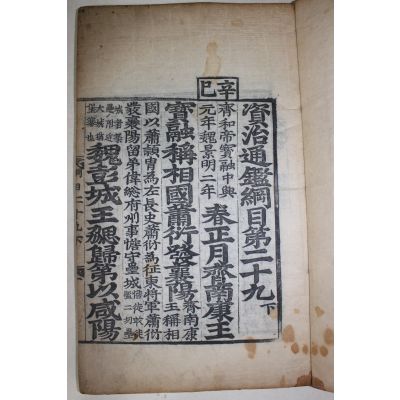 資治通鑑綱目第二十九下
辛巳
齊和帝寶融中興
元年魏景明二年
春正月齊南康王
寶融稱相國蕭衍發襄陽
齊南康
王稱相
國以蕭頴冑為左長史蕭衍為征東將軍蕭衍
發襄陽留弟偉總府州事憺守壘城
憺徒敢徒
濫二切壘
大城
堡寨也
魏彭城王勰歸第以咸陽